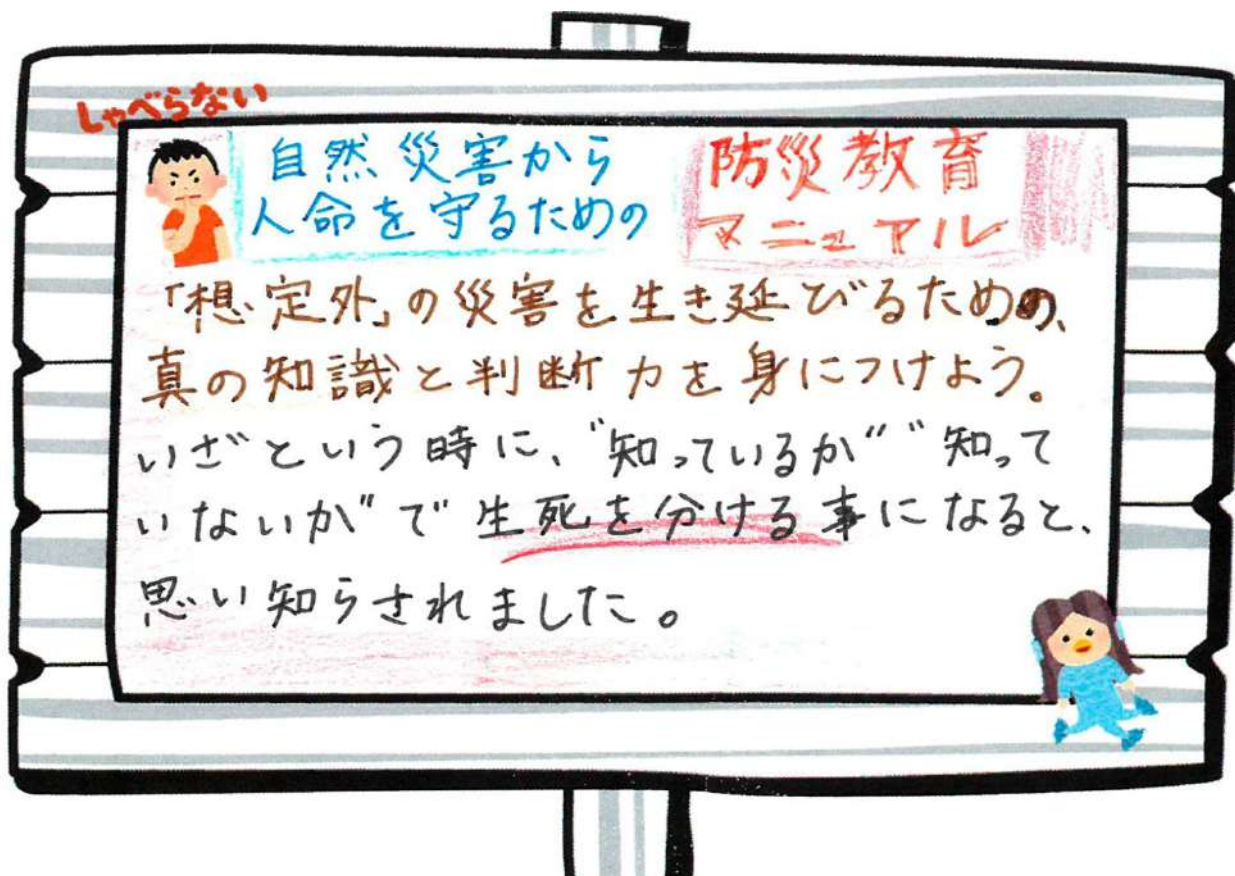 しゃべらない
自然災害から
人命を守るための
防災教育
マニュアル
「想定外」の災害を生き延びるための、
真の知識と判断力を身につけよう。
いざという時に、“知っているか”“知って
いないか”で生死を分ける事になると、
思い知らされました。